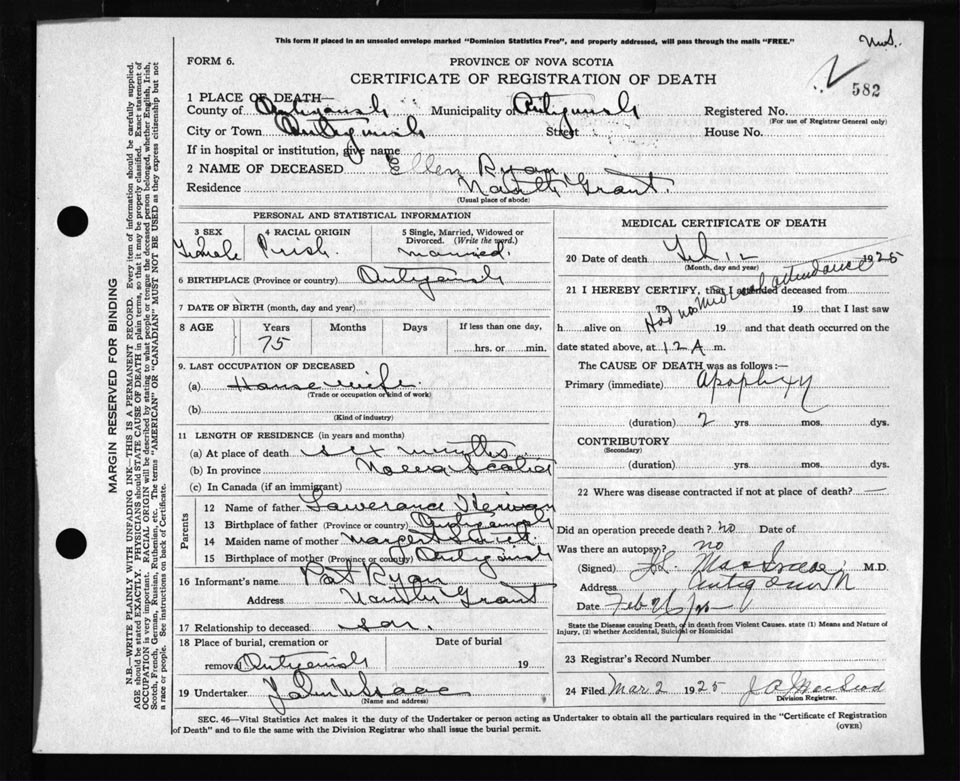 This form if placed in an unsealed envelope marked "Dominion Statistics Free", and properly addressed, will pass through the mails "FREE."
FORM 6.
PROVINCE OF NOVA SCOTIA
CERTIFICATE OF REGISTRATION OF DEATH
582
1 PLACE OF DEATH—
County of Antigonish Municipality of Antigonish Registered No.
(For use of Registrar General only)
City or Town Antigonish Street House No.
If in hospital or institution, give name
2 NAME OF DECEASED Ellen Ryan
Residence North Grant.
(Usual place of abode)
PERSONAL AND STATISTICAL INFORMATION
3 SEX Female
4 RACIAL ORIGIN Irish.
5 Single, Married, Widowed or Divorced. (Write the word.) married.
6 BIRTHPLACE (Province or country) Antigonish
7 DATE OF BIRTH (month, day and year)
8 AGE Years Months Days If less than one day,
75 hrs. or min.
9. LAST OCCUPATION OF DECEASED
(a) House wife.
(Trade or occupation or kind of work)
(b)
(Kind of industry)
11 LENGTH OF RESIDENCE (in years and months)
(a) At place of death six months
(b) In province Nova Scotia
(c) In Canada (if an immigrant)
Parents
12 Name of father Lawerance
13 Birthplace of father (Province or country) Antigonish
14 Maiden name of mother Margert
15 Birthplace of mother (Province or country) Antigonish
16 Informant's name Pat Ryan
Address North Grant
17 Relationship to deceased son.
18 Place of burial, cremation or Date of burial
removal Antigonish 19
19 Undertaker John W Isaac
(Name and address)
MEDICAL CERTIFICATE OF DEATH
20 Date of death Feb 12 1925
(Month, day and year)
21 I HEREBY CERTIFY, that I attended deceased from
Had no medical attendance
19 19 and that I last saw
h alive on 19 and that death occurred on
date stated above, at 12 A m.
The CAUSE OF DEATH was as follows:—
Primary (immediate) apoplexy
(duration) 2 yrs. mos. dys.
CONTRIBUTORY
(Secondary)
(duration) yrs. mos. dys.
22 Where was disease contracted if not at place of death? —
Did an operation precede death? no Date of
Was there an autopsy? no
(Signed) M.D.
Address Antigonish
Date Feb 26/25
State the Disease causing Death, or in death from Violent Causes. state (1) Means and Nature of
Injury, (2) whether Accidental, Suicidal or Homicidal
23 Registrar's Record Number
24 Filed Mar 2 1925 J A MacLeod
Division Registrar.
SEC. 46—Vital Statistics Act makes it the duty of the Undertaker or person acting as Undertaker to obtain all the particulars required in the "Certificate of Registration
of Death" and to file the same with the Division Registrar who shall issue the burial permit.
(OVER)
MARGIN RESERVED FOR BINDING
N.B.—WRITE PLAINLY WITH UNFADING INK—THIS IS A PERMANENT RECORD. Every item of information should be carefully supplied.
AGE should be stated EXACTLY. PHYSICIANS should STATE CAUSE OF DEATH in plain terms, so that it may be properly classified. Exact statement of
OCCUPATION is very important. RACIAL ORIGIN will be described by stating to what people or tongue the deceased person belonged, whether English, Irish,
Scotch, French, German, Russian, Ruthenian, etc. The terms "AMERICAN" OR "CANADIAN" MUST NOT BE USED as they express citizenship but not
a race or people. See instructions on back of Certificate.